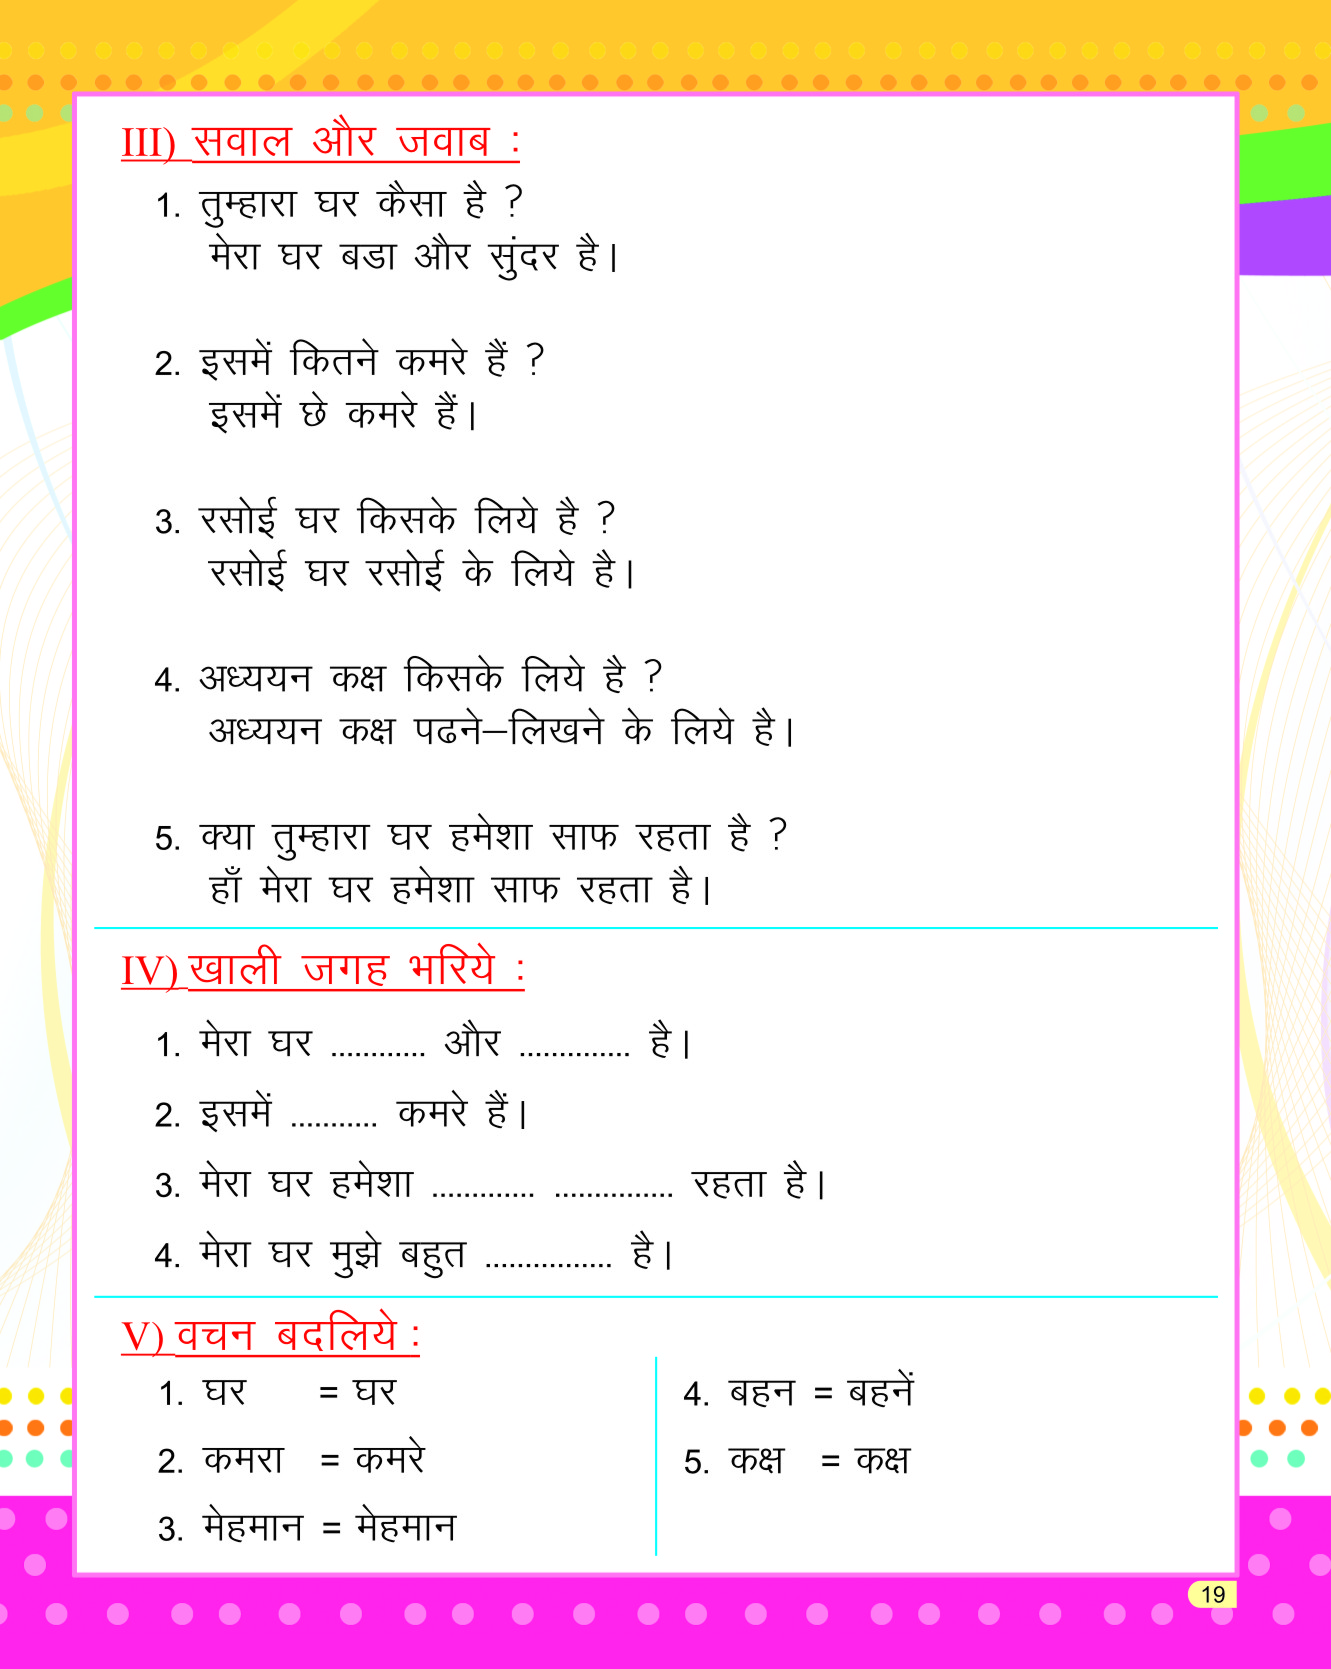 III) सवाल और जवाब :
1. तुम्हारा घर कैसा है ?
मेरा घर बडा और सुंदर है।
2. इसमें कितने कमरे हैं ?
इसमें छे कमरे हैं।
3. रसोई घर किसके लिये है ?
रसोई घर रसोई के लिये है।
4. अध्ययन कक्ष किसके लिये है ?
अध्ययन कक्ष पढने–लिखने के लिये है।
5. क्या तुम्हारा घर हमेशा साफ रहता है ?
हाँ मेरा घर हमेशा साफ रहता है।
IV) खाली जगह भरिये :
1. मेरा घर ............ और .............. है।
2. इसमें ........... कमरे हैं।
3. मेरा घर हमेशा ............. ............... रहता है।
4. मेरा घर मुझे बहुत ................ है।
V) वचन बदलिये :
1. घर = घर
2. कमरा = कमरे
3. मेहमान = मेहमान
4. बहन = बहनें
5. कक्ष = कक्ष
19